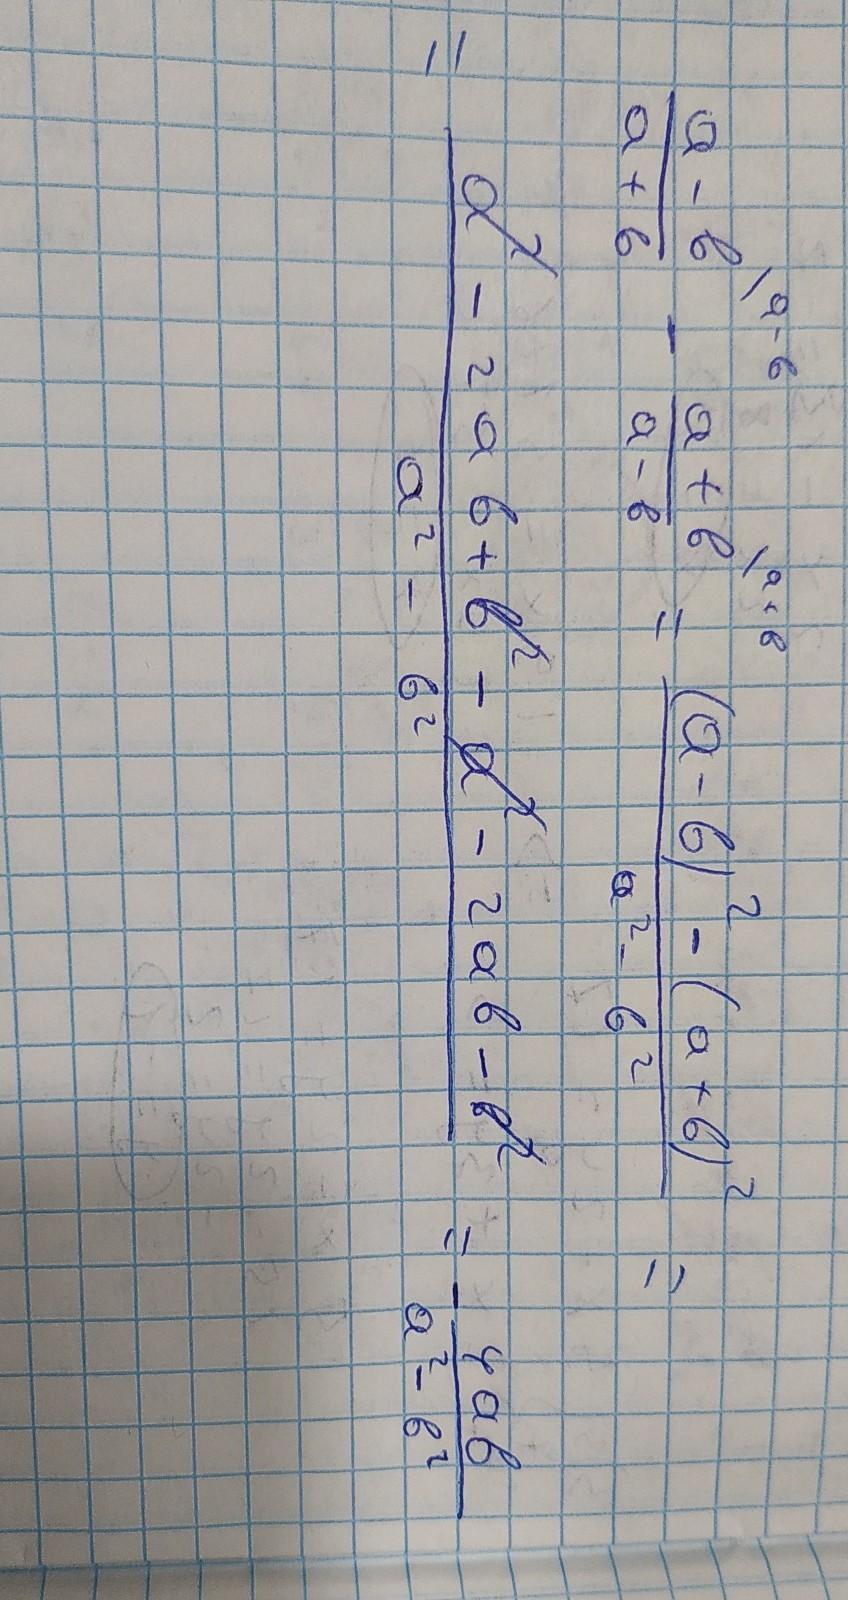 \frac{a - b}{a + b}^{\backslash a - b} - \frac{a + b}{a - b}^{\backslash a + b} = \frac{(a - b)^2 - (a + b)^2}{a^2 - b^2} =
= \frac{a^2 - 2ab + b^2 - a^2 - 2ab - b^2}{a^2 - b^2} = - \frac{4ab}{a^2 - b^2}